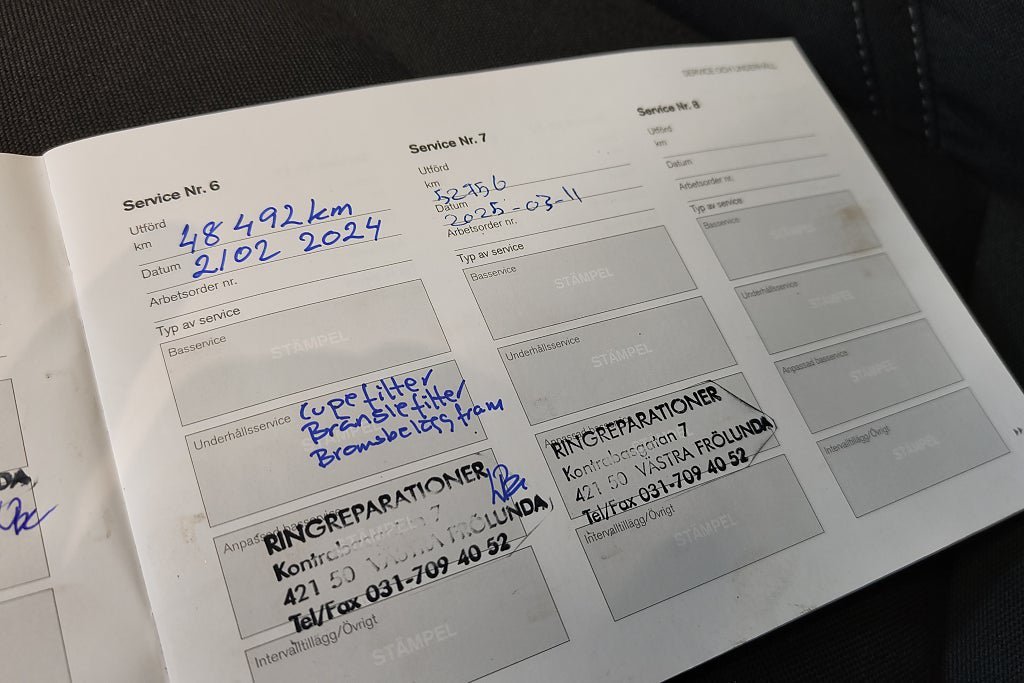 SERVICE OCH UNDERHÅLL
Service Nr. 6
Utförd
km 48 492 km
Datum 2/02 2024
Arbetsorder nr.
Typ av service
Basservice
STÄMPEL
Underhållsservice
Cupefilter
Bränslefilter
Bromsbelägg fram.
RINGREPARATIONER
Kontrabasgatan 7
421 50 VÄSTRA FRÖLUNDA,
Tel/Fax 031-709 40 52
Anpassad basservice
STÄMPEL
Intervalltillägg/Övrigt
STÄMPEL
Service Nr. 7
Utförd
km 52756
Datum 2025-03-11
Arbetsorder nr.
Typ av service
Basservice
STÄMPEL
Underhållsservice
STÄMPEL
Anpassad basservice
RINGREPARATIONER
Kontrabasgatan 7
421 50 VÄSTRA FRÖLUNDA
Tel/Fax 031-709 40 52
Intervalltillägg/Övrigt
STÄMPEL
Service Nr. 8
Utförd
km
Datum
Arbetsorder nr.
Typ av service
Basservice
STÄMPEL
Underhållsservice
STÄMPEL
Anpassad basservice
STÄMPEL
Intervalltillägg/Övrigt
STÄMPEL